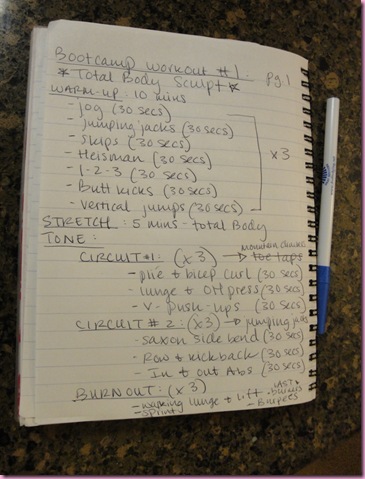 Bootcamp Workout #1:
pg. 1
* Total Body Sculpt *
WARM-UP: 10 mins
- jog (30 secs)
- jumping jacks (30 secs)
- skips (30 secs)
- Heisman (30 secs)
- 1-2-3 (30 secs)
- Butt kicks (30 secs)
- vertical jumps (30 secs)
x3
STRETCH: 5 mins - total Body
TONE:
mountain climbers
CIRCUIT #1: (x3) → toe taps
- plie & bicep curl (30 secs)
- lunge & OH press (30 secs)
- V-push-ups (30 secs)
CIRCUIT #2: (x3) → jumping jacks
- saxon side bend (30 secs)
- Row & kickback (30 secs)
- In & out Abs (30 secs)
BURNOUT: (x3)
- walking lunge & lift
- sprint
- Burpees